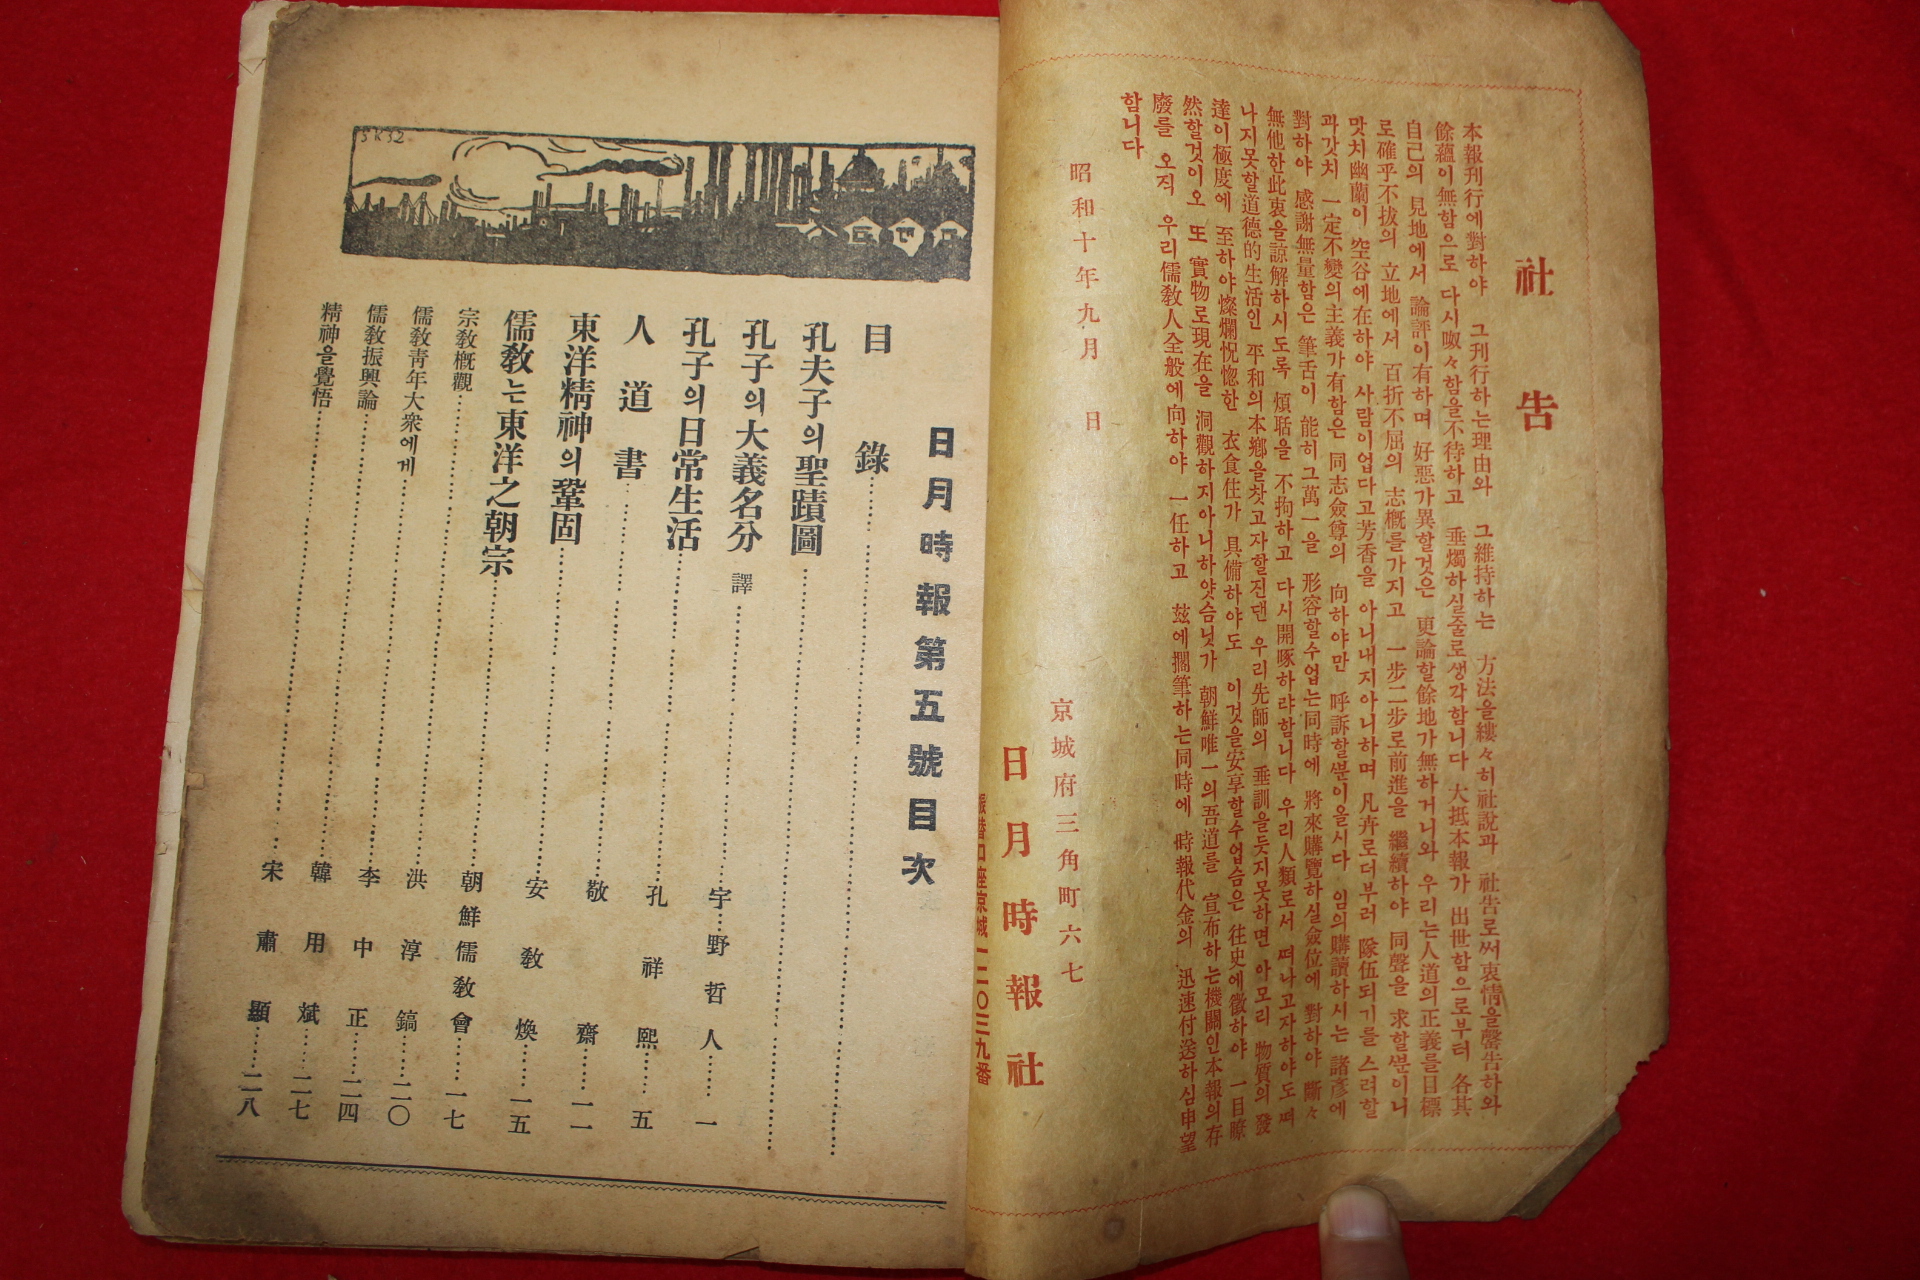 社告
本報刊行에對하야 그刊行하는理由와 그維持하는 方法을縷々히社說과 社告로써衷情을罄告하와
餘蘊이無함으로 다시呶々함을不待하고 垂燭하실줄로생각합니다 大抵本報가 出世함으로부터 各其
自己의 見地에서 論評이有하며 好惡가異할것은 更論할餘地가無하거니와 우리는人道의正義를目標
로確乎不拔의 立地에서 百折不屈의 志槪를가지고 一步二步로前進을 繼續하야 同聲을 求할뿐이니
맛치幽蘭이 空谷에在하야 사람이업다고芳香을 아니내지아니하며 凡卉로더부러 隊伍되기를스려할
과갓치 一定不變의主義가有함은 同志僉尊의 向하야만 呼訴할뿐이올시다 임의購讀하시는 諸彦에
對하야 感謝無量함은 筆舌이 能히그萬一을 形容할수업는同時에 將來購覽하실僉位에 對하야 斷々
無他한此衷을諒解하시도록 煩聒을 不拘하고 다시開啄하랴함니다 우리人類로서 떠나고자하야도떠
나지못할道德的生活인 平和의本鄕을찻고자할진댄 우리先師의 垂訓을듯지못하면 아모리 物質의 發
達이極度에 至하야燦爛怳惚한 衣食住가 具備하야도 이것을安享할수업슴은 往史에徵하야 一目瞭
然할것이오 또 實物로現在을 洞觀하지아니하얏슴닛가 朝鮮唯一의吾道를 宣布하는機關인本報의存
廢를 오직 우리儒敎人全般에向하야 一任하고 玆에擱筆하는同時에 時報代金의 迅速付送하심申望
함니다
昭和十年九月 日
京城府三角町六七
日月時報社
振替口座京城一二〇三九番
日月時報第五號目次
目錄
孔夫子의聖蹟圖
孔子의大義名分 譯 宇野哲人 一
孔子의日常生活 孔祥熙 五
人道書 敬齋 一一
東洋精神의鞏固 安敎煥 一五
儒敎는東洋之朝宗 朝鮮儒敎會 一七
宗敎槪觀 洪淳鎬 二〇
儒敎靑年大衆에게 李中正 二四
儒敎振興論 韓用斌 二七
精神을覺悟 宋肅顯 二八